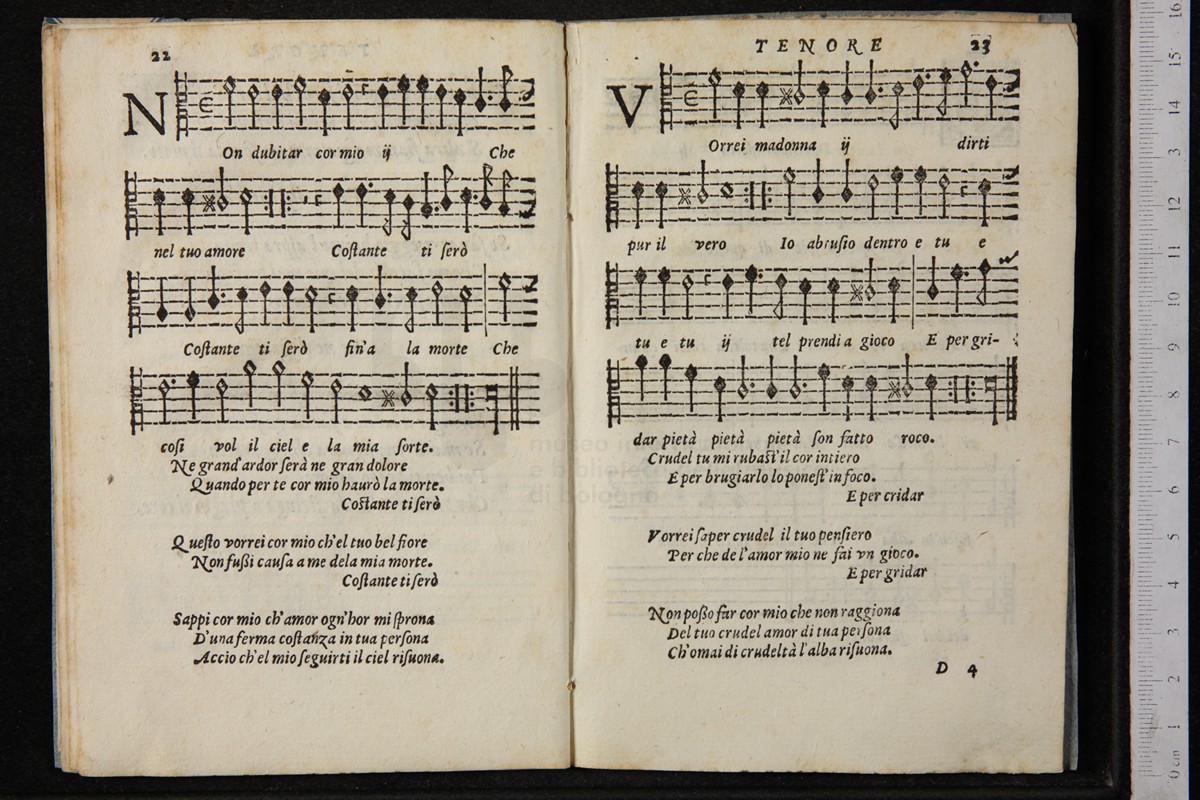 22
N
On dubitar cor mio ij Che
nel tuo amore Costante ti serò
Costante ti serò fin'a la morte Che
cosi vol il ciel e la mia sorte.
Ne grand'ardor serà ne gran dolore
Quando per te cor mio haurò la morte.
Costante ti serò
Questo vorrei cor mio ch'el tuo bel fiore
Non fussi causa a me dela mia morte.
Costante ti serò
Sappi cor mio ch'amor ogn'hor mi sprona
D'una ferma costanza in tua persona
Accio ch'el mio seguirti il ciel risuona.
TENORE 23
V
Orrei madonna ij dirti
pur il vero Io abrusio dentro e tu e
tu e tu ij tel prendi a gioco E per gri-
dar pietà pietà pietà son fatto roco.
Crudel tu mi rubast'il cor intiero
E per brugiarlo lo ponest'in foco.
E per cridar
Vorrei saper crudel il tuo pensiero
Per che de l'amor mio ne fai vn gioco.
E per gridar
Non posso far cor mio che non raggiona
Del tuo crudel amor di tua persona
Ch'omai di crudeltà l'alba risuona.
D 4
museo
e biblio
di bologna
0 cm 1 2 3 4 5 6 7 8 9 10 11 12 13 14 15 16